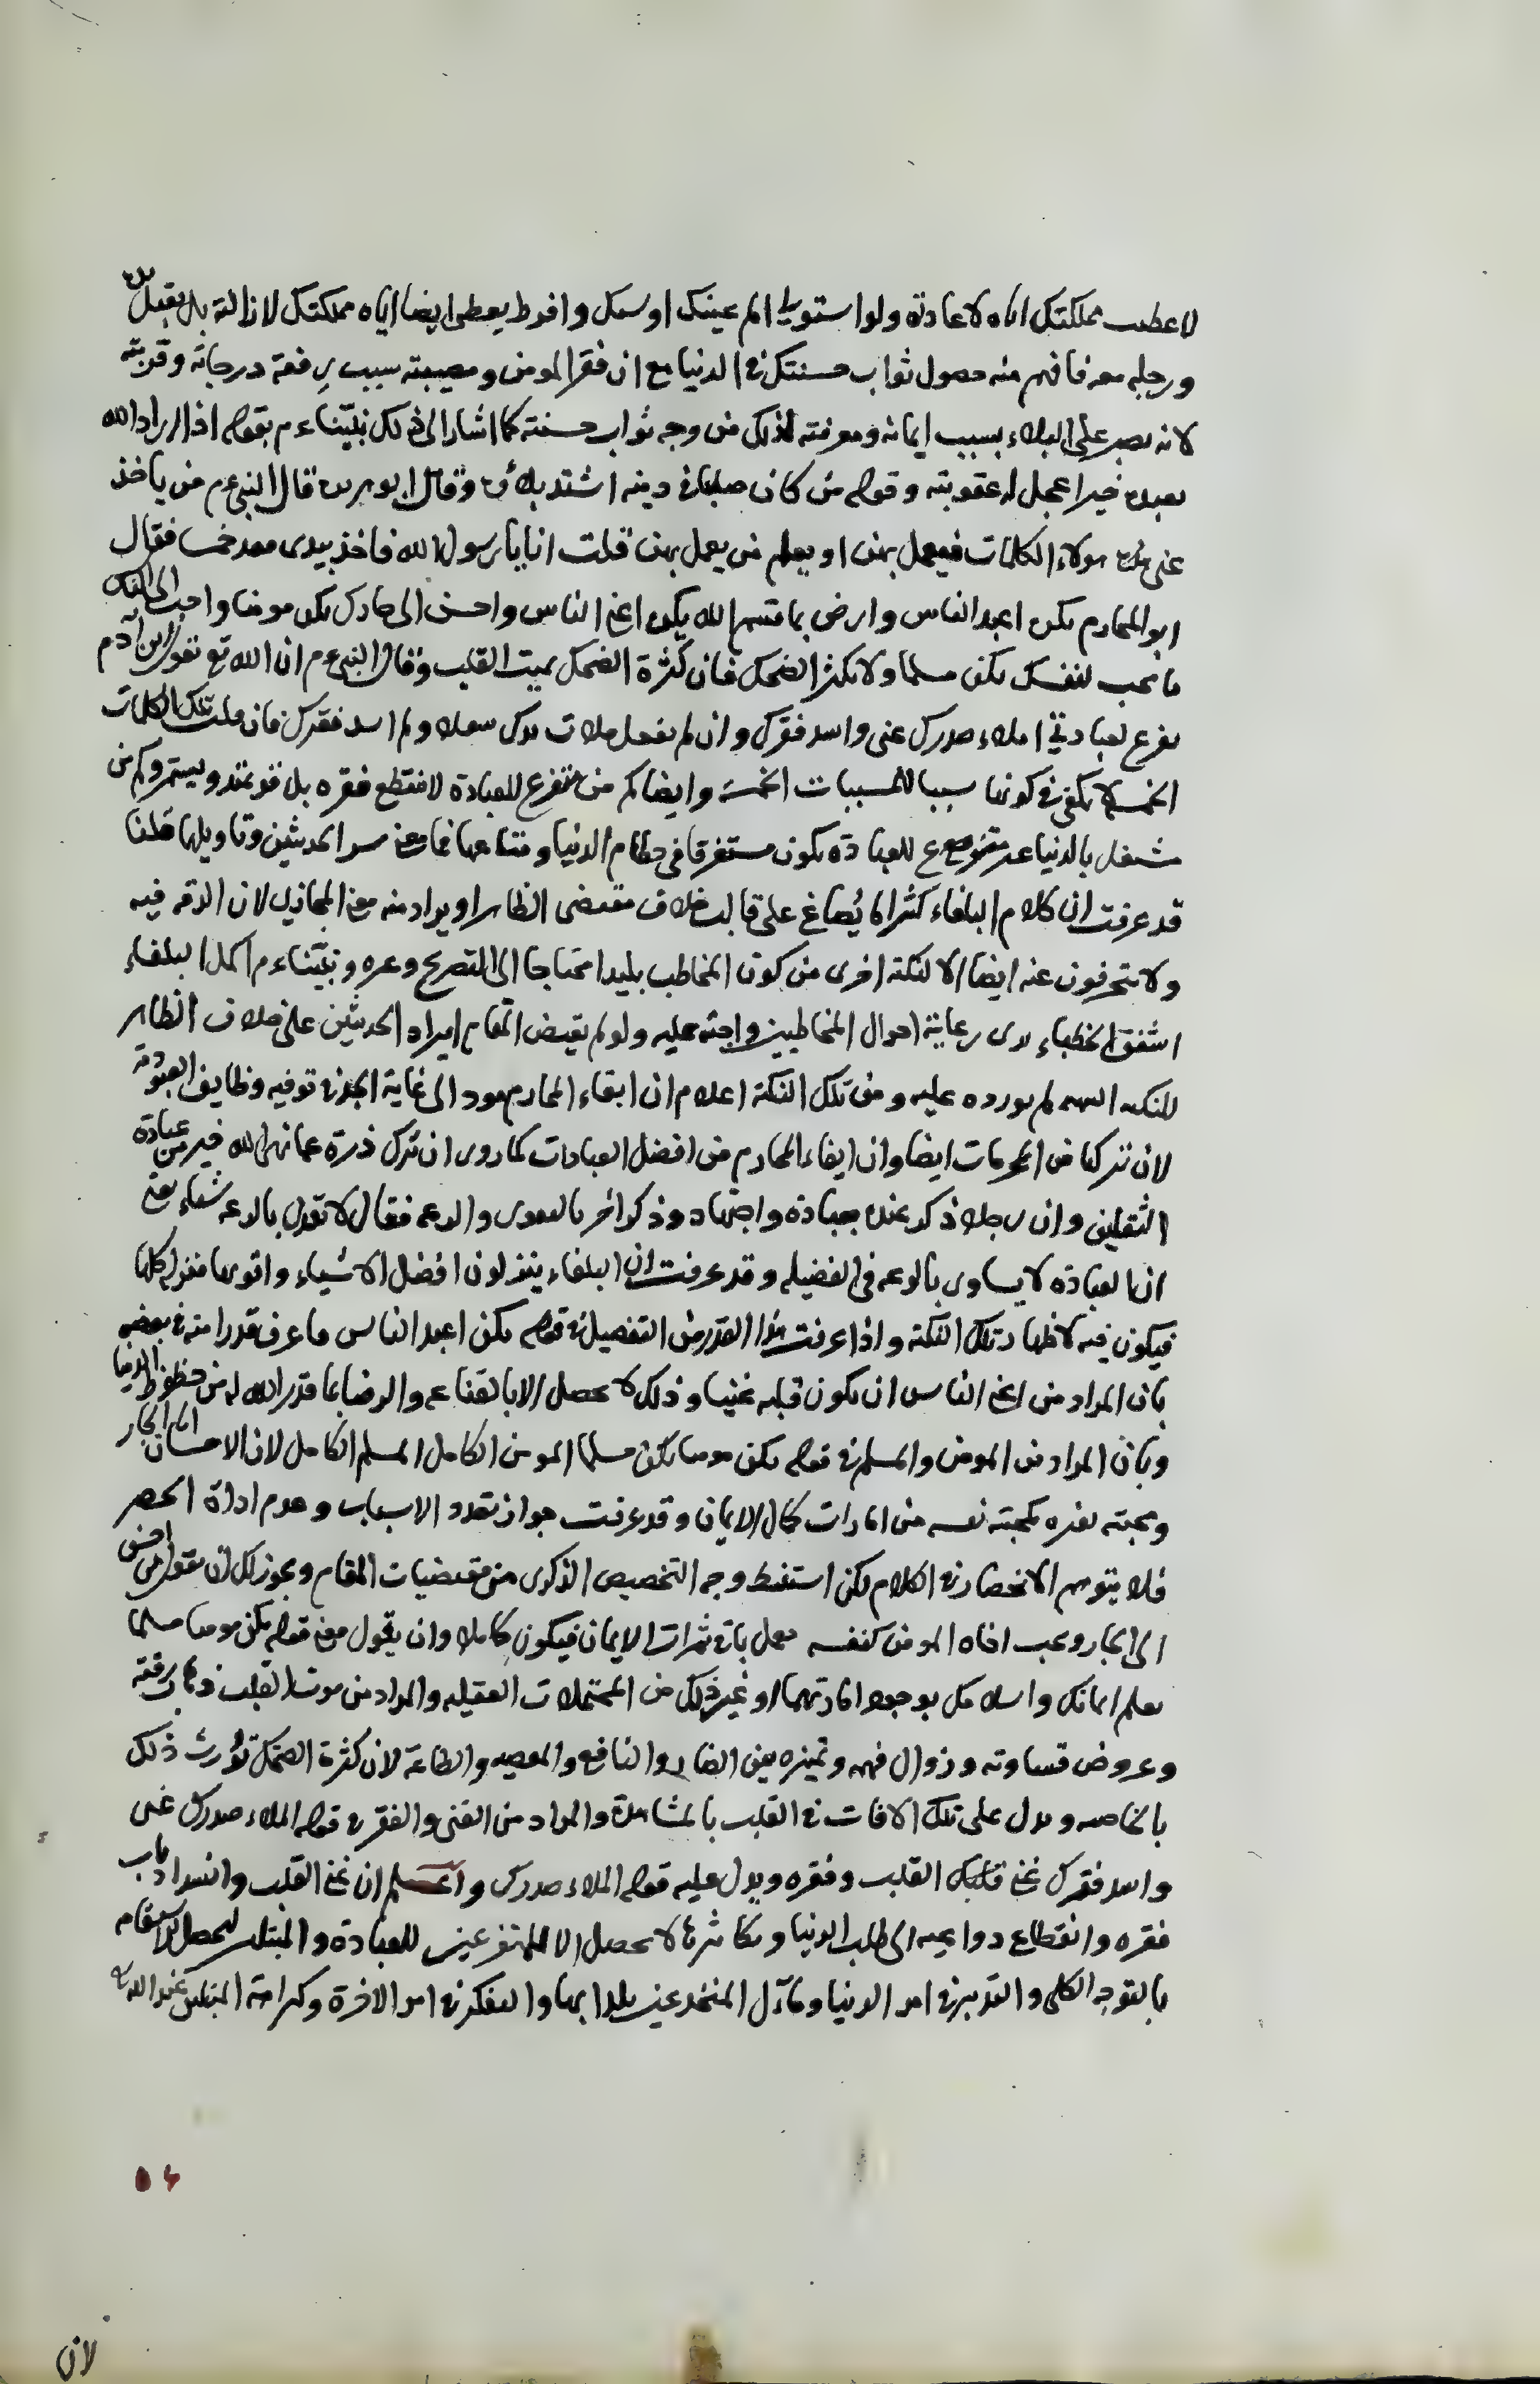 لاعطيت مملكتك اياه لاعادته ولو استوى الم عينك او سنك وافرط يعطى ايضا اياه مملكتك لازالته بل يقبل يده
ورجله معه فافهم منه حصول ثواب حسنتك في الدنيا مع ان فقر المومن ومصيبته سبب رفعة درجاته وقربته
لانه يصبر على البلاء بسبب ايمانه ومعرفته لذلك من وجه ثواب حسنته كما اشار الى ذلك نبيناء م بقوله اذا اراد الله
بعبده خيرا عجل له عقوبته وقوله من كان صلبا في دينه اشتد بلاؤه وقال ابو هريره قال النبي عم من ياخذ
عنى هؤلاء الكلمات فيعمل بهن او يعلم من يعمل بهن قلت انا يا رسول الله فاخذ بيدى فعد خمسا فقال
اتق المحارم تكن اعبد الناس وارض بما قسم الله يكن اغنى الناس واحسن الى جارك تكن مومنا واحب الى الناس
ما تحب لنفسك تكن مسلما ولا تكثر الضحك فان كثرة الضحك تميت القلب وقال النبي عم ان الله تع يقول ابن آدم
تفرغ لعبادتي املاء صدرك غنى واسد فقرك وان لم تفعل ملات يدك شغلا ولم اسد فقرك فان قلت تلك الكلمات
الخمسة لا تكفى في كونها سببا للمسببات الخمسة وايضا كم من متفرغ للعبادة لا ينقطع فقره بل فقره يمتد ويستمر وكم من
مشتغل بالدنيا غير متفرغ للعبادة يكون مستغرقا في حطام الدنيا ومتاعها فما معنى سر الحديثين وتاويلها قلنا
قد عرفت ان كلام البلغاء كثيرا ما يصاغ على قالب خلاف مقتضى الظاهر ويراد منه معنى المجازى لان الدقه فيه
ولا ينحرفون عنه ايضا الا لنكتة اخرى من كون المخاطب بليدا محتاجا الى التصريح وغيره ونبيناء م اكمل البلغاء
اشفق الخطباء لدى رعاية احوال المخاطبين واجبة عليه ولو لم يقتض المقام ايراد الحديثين على خلاف الظاهر
للنكتة البهيه لم يورده عليه ومن تلك النكتة اعلام ان اتقاء المحارم يعود الى غاية الجد في توفيه وظايف العبودية
لان تركها من المحرمات ايضا وان اتقاء المحارم من افضل العبادات كما روى ان ترك ذرة مما نهى الله خير من عبادة
الثقلين وان رجلا ذكر عنده بعبادة واجتهاد وذكر آخر بالتقوى والورع فقال لا تعدل بالورع شيئاء يعنى
ان العبادة لا يساوى بالورع في الفضيله وقد عرفت ان البلغاء ينزلون افضل الاشياء واقوىها منزلة كلها
فيكون فيه لاظهار تلك النكتة واذا عرفت هذا القدر من التفصيل في قوله تكن اعبد الناس فاعرف قدرا منه في بعضه
بان المراد من اغنى الناس ان يكون قلبه غنيا وذلك لا يحصل الا بالقناعه والرضا بما قدر الله له من حظوظ الدنيا
وبان المراد من المومن والمسلم في قوله تكن مومنا تكن مسلما المومن الكامل المسلم الكامل لان الاحسان الى الجار
ومحبته لغيره كمحبته نفسه من امارات كمال الايمان وقد عرفت جواز تعدد الاسباب وعدم اداة الحصر
فلا يتوهم الانحصار في الكلام لكن استنبط وجه التخصيص الذكرى من مقتضيات المقام ويجوز لك ان تقول من احسن
الى الجار ويحب اخاه المومن كنفسه يعمل باقى ثمرات الايمان فيكون كاملا وان يقول معنى قوله تكن مومنا مسلما
يعلم ايمانك واسلامك بوجود امارتهما او غير ذلك من المحتملات العقليه والمراد من موت القلب ذهاب رقته
وعروض قساوته وزوال فهمه وتميزه بين الضار والنافع والمعصيه والطاعة لان كثرة الضحك تورث ذلك
بالخاصه ويدل على تلك الافات في القلب بالمشاهدة والمراد من الغنى والفقر في قوله املاء صدرك غنى
واسد فقرك غنى القلب وفقره ويدل عليه قوله املاء صدرك واعلم ان غنى القلب وانسداد باب
فقره وانقطاع دواعيه الى طلب الدنيا وتكاثرها لا يحصل الا للمتفرغين للعبادة والمبتلى ليحصل المقام
بالتوجه الكلى والتدبر في امر الدنيا ومآل المنخدعين بلذاتها والتفكر في امر الاخرة وكرامة المتقين عند الله تع
٥٦
لان